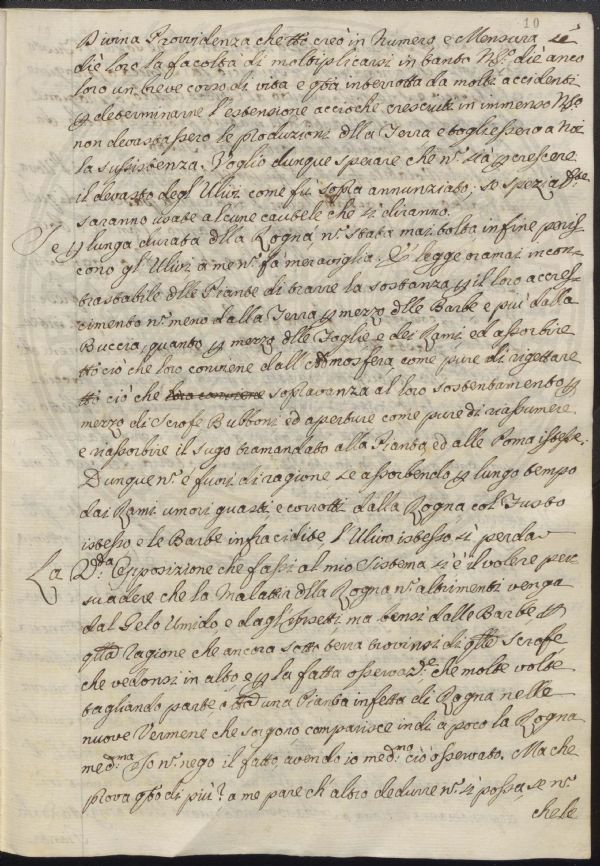 10
Divina Provvidenza che ttõ creò in Numero, e Mensura se
diè loro la facoltà di moltiplicarsi in tanto N.ro, diè anco
loro un breve corso di vita e qta interrotta da molti accidenti
p determinarne l'estensione acciochè cresciuti in immenso N.ro
non devastassero le produzioni dlla Terra e togliessero a Noi
la sussistenza. Voglio dunque sperare che nõ. sia p crescere
il devasto degl'Ulivi come fu sopra annunziato, se spezialm.te
saranno usate alcune cautele che si diranno.
Se p lunga durata dlla Rogna nõ. stata mai tolta in fine peris-
cono gl'Ulivi a me nõ. fa meraviglia. È legge oramai incon-
trastabile dlle Piante di trarre la sostanza p il loro accres-
cimento nõ. meno dalla Terra p mezzo dlle Barbe e più dalla
Buccia, quanto p mezzo dlle Foglie, e dei Rami, ed assorbire
ttõ ciò che loro conviene dall'Atmosfera come pure di rigettare
ttõ ciò che loro conviene sopravanza al loro sostentamento p
mezzo di Scrofe Bubboni ed aperture come pure di riassumere
e riassorbire il sugo tramandato alla Pianta, ed alle Poma istesse.
Dunque nõ. è fuori di ragione se assorbendo p lungo tempo
dai Rami umori guasti, e corrotti dalla Rogna col Fusto
istesso e le Barbe infracidite, l'Ulivo istesso si perda.
La 2.da Opposizione che fassi al mio Sistema si è il volere per-
suadere che la Malattia dlla Rogna nõ. altrimenti venga
dal Gelo Umido e dagl'Insetti, ma bensì dalle Barbe, p
qtta ragione che ancora sotto terra trovinsi di qtte Scrofe
che vedonsi in alto, e p la fatta osservaz.e che molte volte
tagliando parte o ttã una Pianta infetta di Rogna nelle
nuove Vermene che sorgono, comparisce indi a poco la Rogna
med.ma. Io nõ. nego il fatto, avendo io med.mo ciò osservato. Ma che
prova qto di più? a me pare ch'altro dedurre nõ. si possa, se nõ.
che le